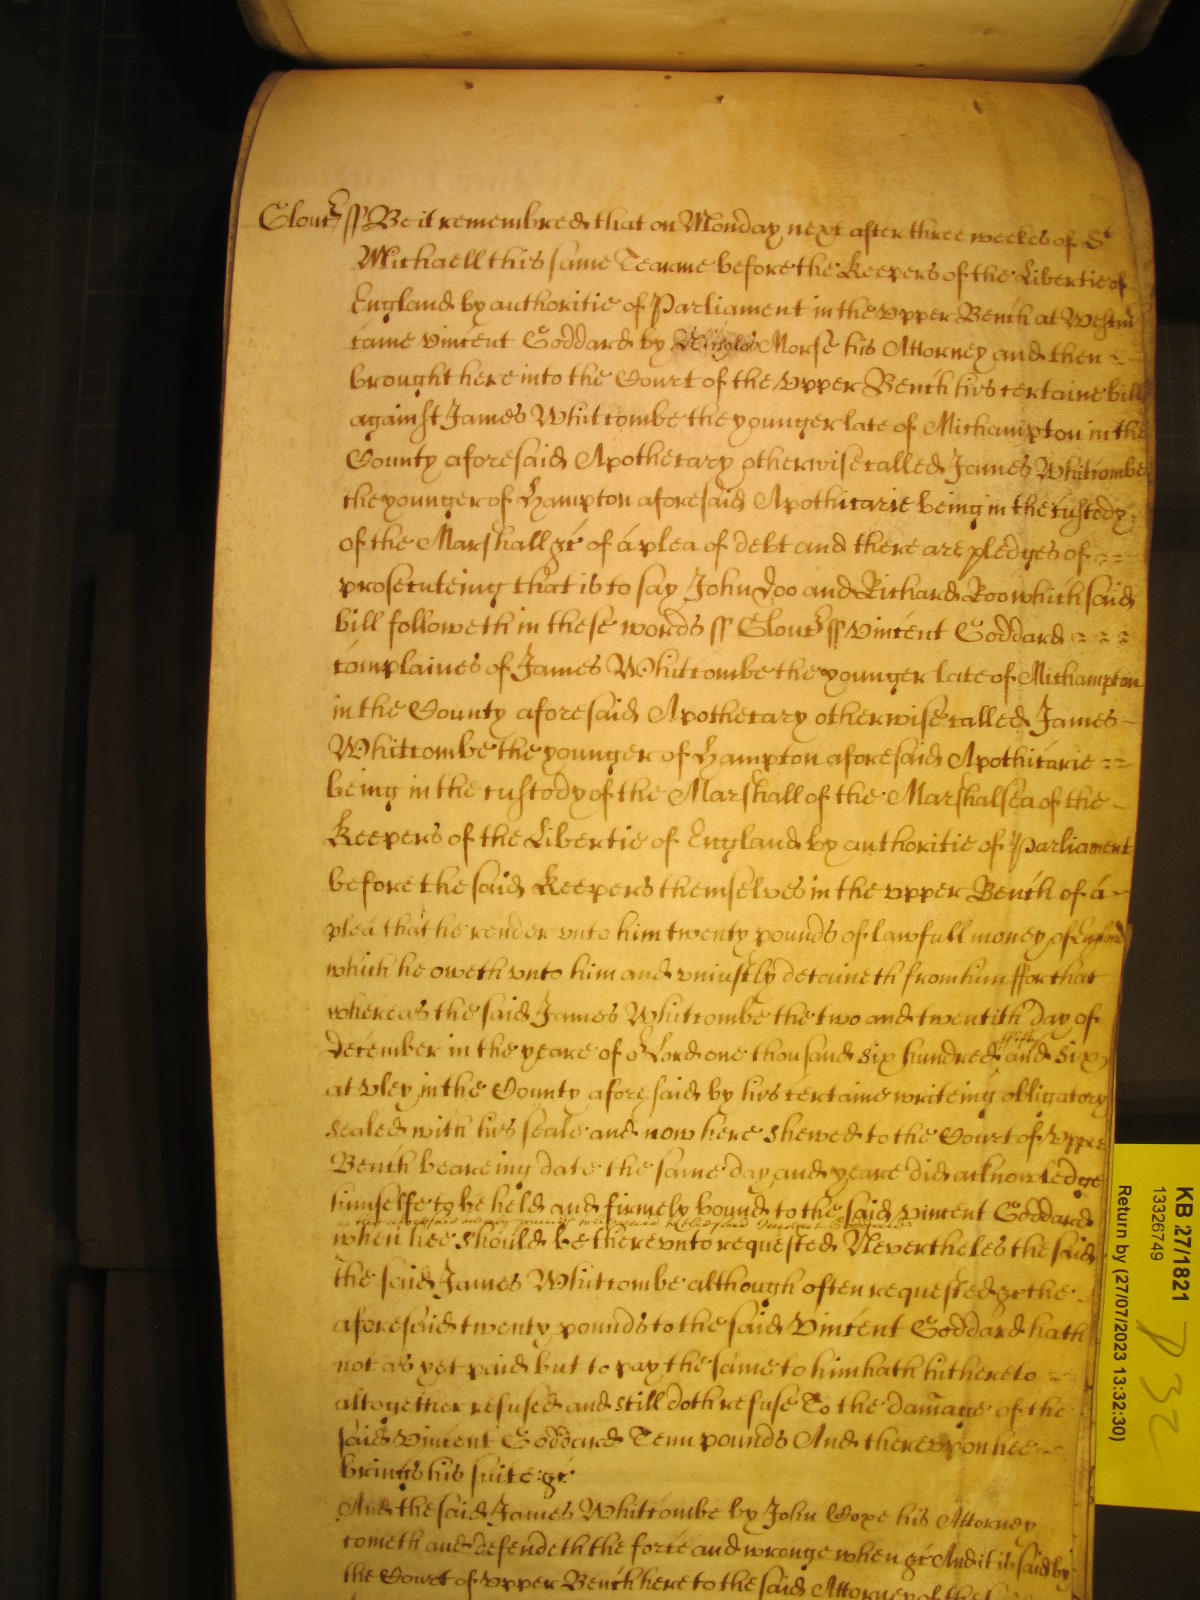 Glouc ss Be it remembred that on Monday next after three weekes of St
Michaell this same Tearme before the Keepers of the Libertie of
England by authoritie of Parliament in the vpper Bench at Westm
came Vincent Goddard by Morse his Attorney and then
brought here into the Court of the Vpper Bench his certaine bill
against James Whitcombe the younger late of Michampton in the
County aforesaid Apothecary otherwise called James Whitcombe
the younger of Hampton aforesaid Apothicarie being in the custody
of the Marshall &c of a plea of debt and there are pledges of
prosecuteing that is to say John Doo and Richard Roo which said
bill followeth in these words ss Glouc ss Vincent Goddard
complaines of James Whitcombe the younger late of Michampton
in the County aforesaid Apothecary otherwise called James
Whitcombe the younger of Hampton aforesaid Apothicarie
being in the custody of the Marshall of the Marshalsea of the
Keepers of the Libertie of England by authoritie of Parliament
before the said Keepers themselves in the vpper Bench of a
plea that he render vnto him twenty pounds of lawfull money of England
which he oweth vnto him and vniustly detaineth from him ffor that
whereas the said James Whitcombe the two and twentith day of
December in the yeare of or Lord one thousand six hundred ffifty and six
at Vley in the County aforesaid by his certaine writeing obligatory
sealed with his seale and now here shewed to the Court of Vpper
Bench beareing date the same day and yeare did acknowledge
himselfe to be held and firmely bound to the said Vincent Goddard
in the aforesaid twenty pounds to be paid to the said Vincent Goddard
when hee should be therevnto requested Nevertheles the said
the said James Whitcombe although often requested &c the
aforesaid twenty pounds to the said Vincent Goddard hath
not as yet paid but to pay the same to him hath hithereto
altogether refused and still doth refuse To the damage of the
said Vincent Goddard Tenn pounds And therevpon hee
brings his suite &c
And the said James Whitcombe by John Cope his Attorney
cometh and defendeth the force and wronge when &c And it is said by
the Court of vpper Bench here to the said Attorney of the
KB 27/1821
13326749
Return by (27/07/2023 13:32:30)
D 32